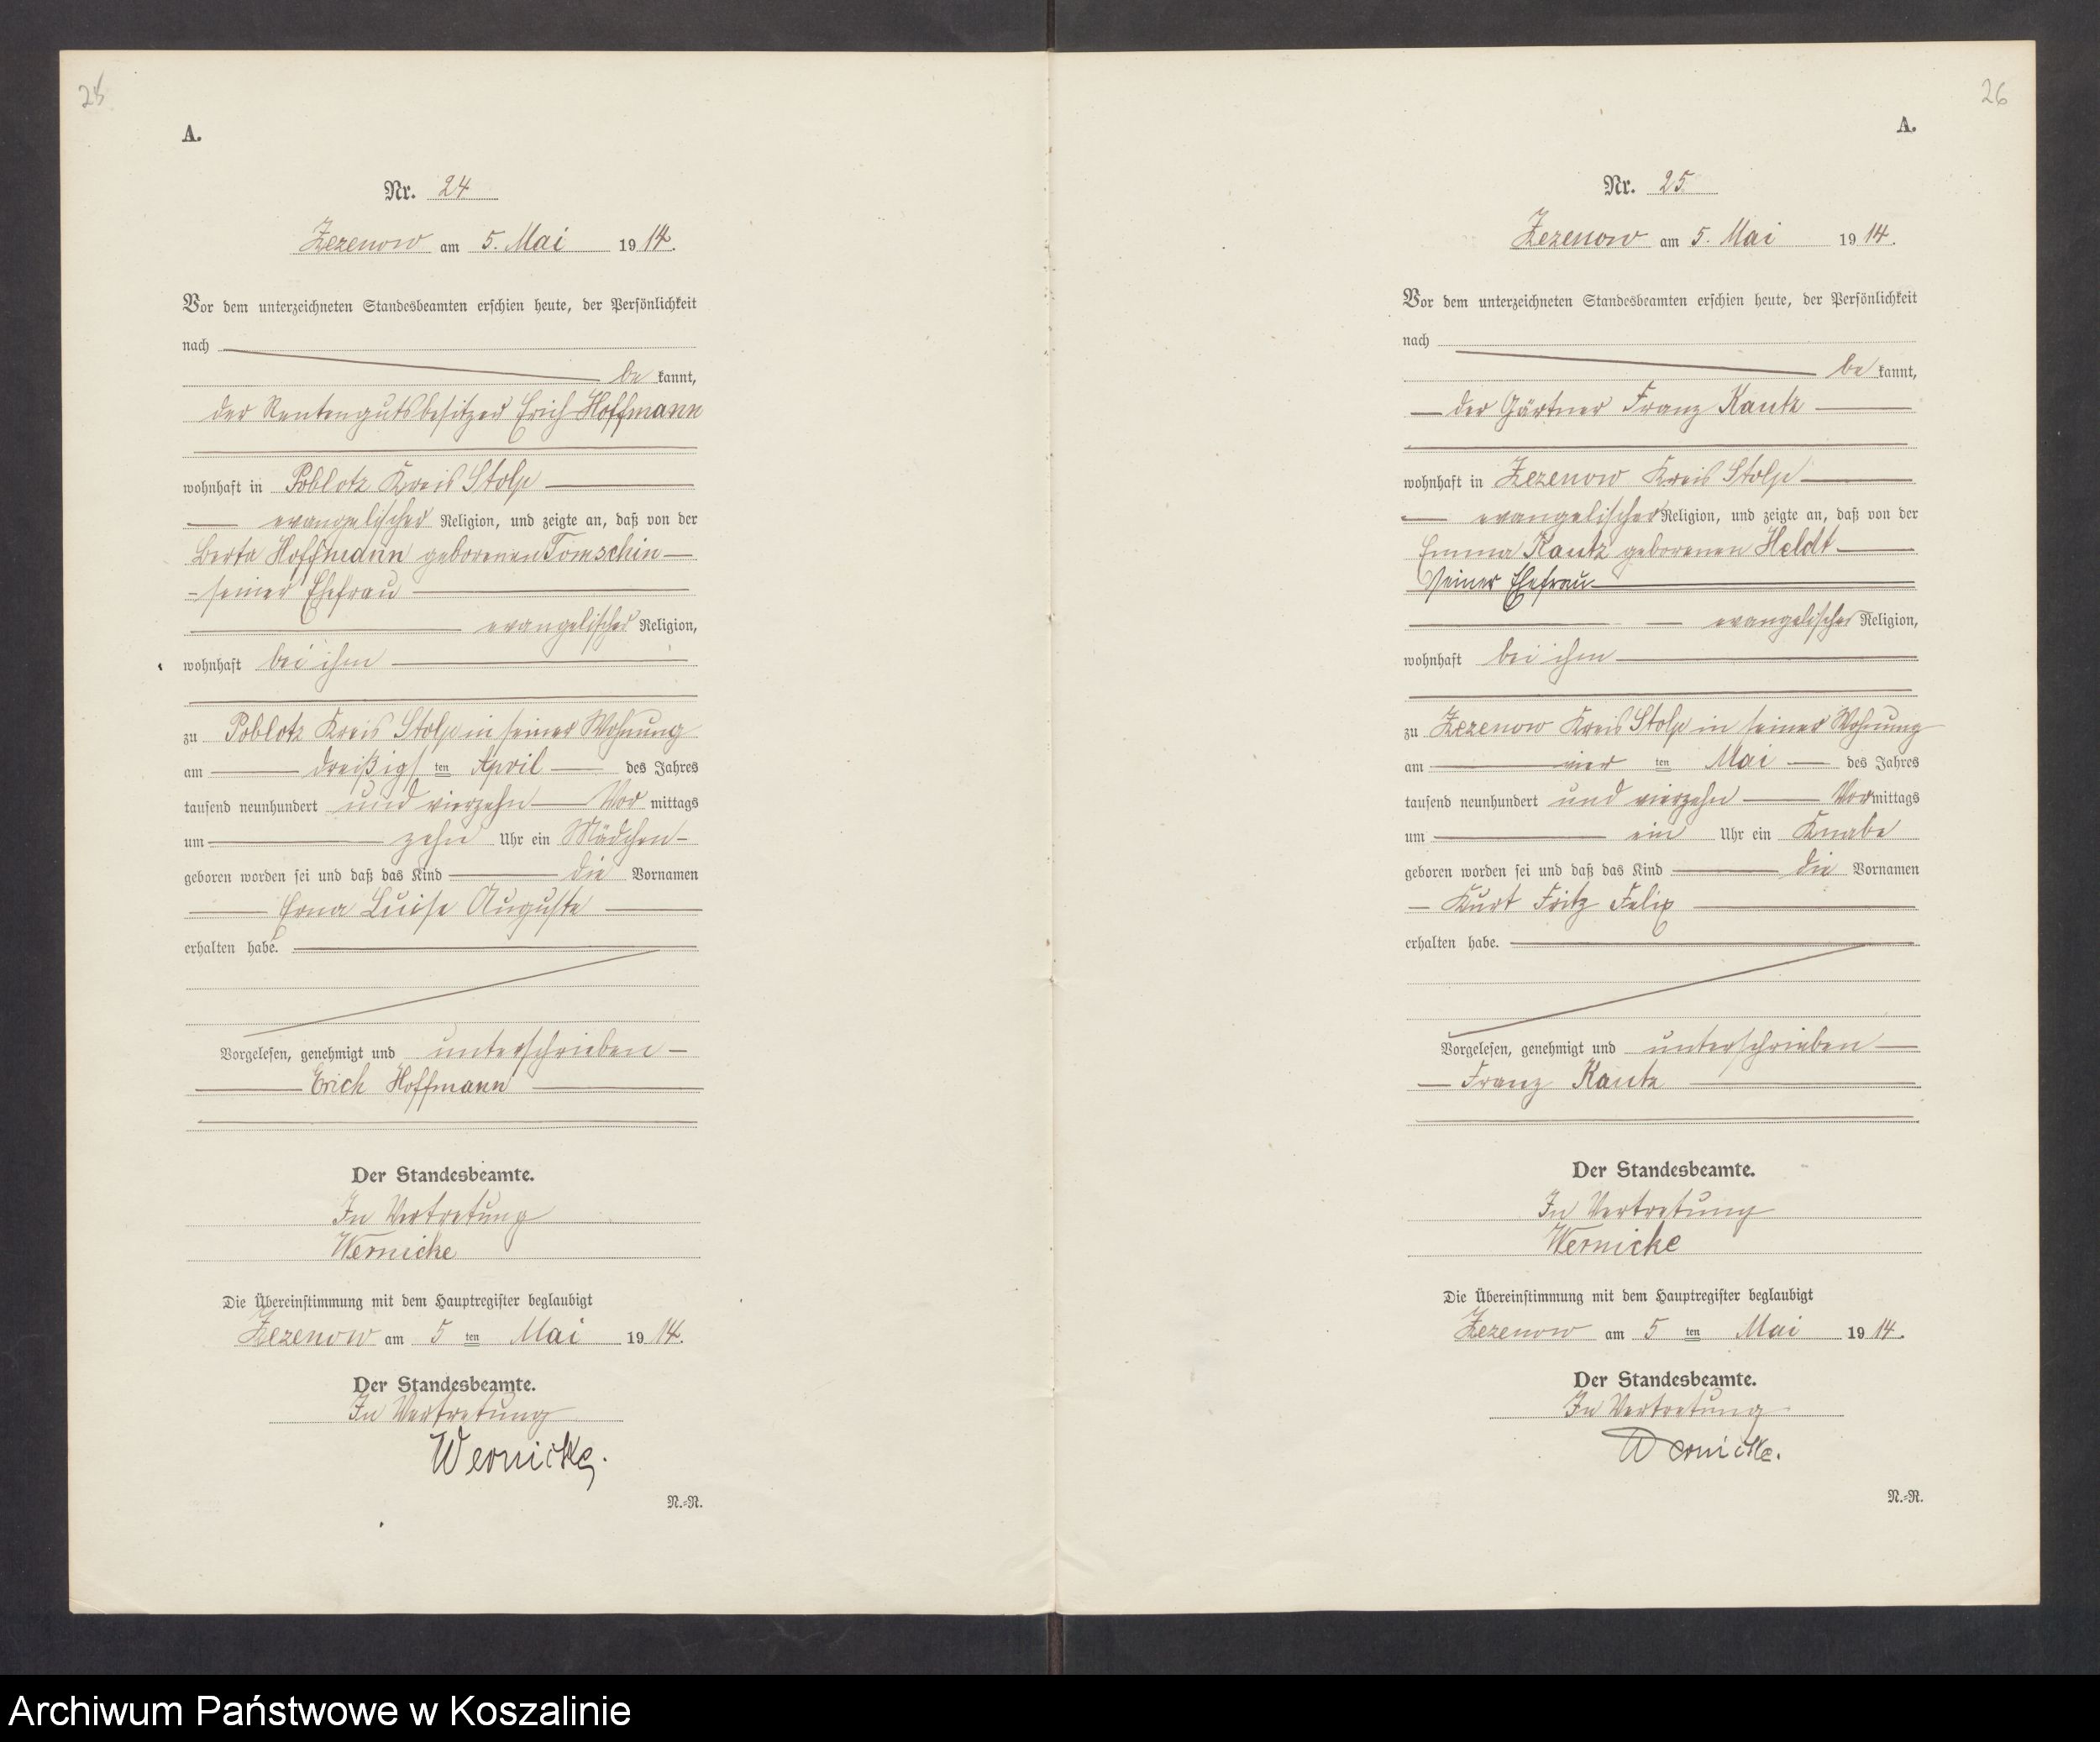 25
A.
Nr. 24
Zezenow am 5. Mai 1914.
Vor dem unterzeichneten Standesbeamten erschien heute, der Persönlichkeit
nach
be kannt,
der Rentengutsbesitzer Erich Hoffmann
wohnhaft in Poblotz Kreis Stolp
evangelischer Religion, und zeigte an, daß von der
Berta Hoffmann geborenen Tomschin
seiner Ehefrau
evangelischer Religion,
wohnhaft bei ihm
zu Poblotz Kreis Stolp in seiner Wohnung
am dreißigsten April des Jahres
tausend neunhundert und vierzehn Vor mittags
um zehn Uhr ein Mädchen
geboren worden sei und daß das Kind die Vornamen
Erna Luise Auguste
erhalten habe.
Vorgelesen, genehmigt und unterschrieben
Erich Hoffmann
Der Standesbeamte.
In Vertretung
Wernicke
Die Übereinstimmung mit dem Hauptregister beglaubigt
Zezenow am 5 ten Mai 1914.
Der Standesbeamte.
In Vertretung
Wernicke.
N.=R.
26
A.
Nr. 25
Zezenow am 5. Mai 1914.
Vor dem unterzeichneten Standesbeamten erschien heute, der Persönlichkeit
nach
be kannt,
der Gärtner Franz Kautz
wohnhaft in Zezenow Kreis Stolp
evangelischer Religion, und zeigte an, daß von der
Emma Kautz geborenen Heldt
seiner Ehefrau
evangelischer Religion,
wohnhaft bei ihm
zu Zezenow Kreis Stolp in seiner Wohnung
am vier ten Mai des Jahres
tausend neunhundert und vierzehn Vormittags
um ein Uhr ein Knabe
geboren worden sei und daß das Kind die Vornamen
Kurt Fritz Felix
erhalten habe.
Vorgelesen, genehmigt und unterschrieben
Franz Kautz
Der Standesbeamte.
In Vertretung
Wernicke
Die Übereinstimmung mit dem Hauptregister beglaubigt
Zezenow am 5 ten Mai 1914.
Der Standesbeamte.
In Vertretung
Wernicke.
N.=R.
Archiwum Państwowe w Koszalinie